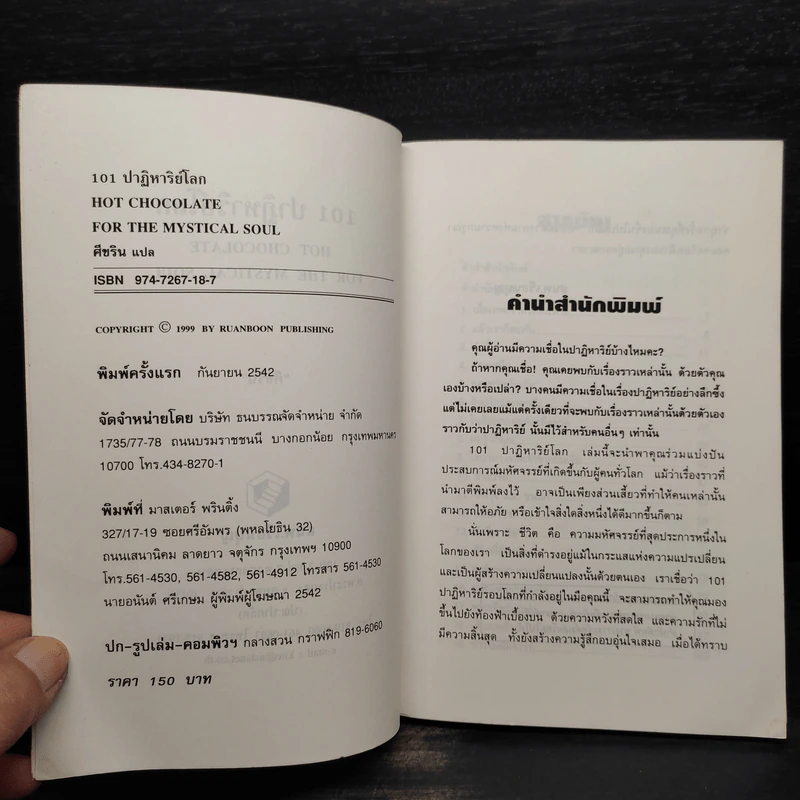 101 ปาฏิหาริย์โลก
HOT CHOCOLATE
FOR THE MYSTICAL SOUL
ศีขริน แปล
ISBN 974-7267-18-7
COPYRIGHT © 1999 BY RUANBOON PUBLISHING
พิมพ์ครั้งแรก กันยายน 2542
จัดจำหน่ายโดย บริษัท ธนบรรณจัดจำหน่าย จำกัด
1735/77-78 ถนนบรมราชชนนี บางกอกน้อย กรุงเทพมหานคร
10700 โทร.434-8270-1
พิมพ์ที่ มาสเตอร์ พรินติ้ง
327/17-19 ซอยศรีอัมพร (พหลโยธิน 32)
ถนนเสนานิคม ลาดยาว จตุจักร กรุงเทพฯ 10900
โทร.561-4530, 561-4582, 561-4912 โทรสาร 561-4530
นายอนันต์ ศรีเกษม ผู้พิมพ์ผู้โฆษณา 2542
ปก-รูปเล่ม-คอมพิวฯ กลางสวน กราฟฟิก 819-6060
ราคา 150 บาท
คำนำสำนักพิมพ์
คุณผู้อ่านมีความเชื่อในปาฏิหาริย์บ้างไหมคะ?
ถ้าหากคุณเชื่อ! คุณเคยพบกับเรื่องราวเหล่านั้น ด้วยตัวคุณ
เองบ้างหรือเปล่า? บางคนมีความเชื่อในเรื่องปาฏิหาริย์อย่างลึกซึ้ง
แต่ไม่เคยเลยแม้แต่ครั้งเดียวที่จะพบกับเรื่องราวเหล่านั้นด้วยตัวเอง
ราวกับว่าปาฏิหาริย์ นั้นมีไว้สำหรับคนอื่นๆ เท่านั้น
101 ปาฏิหาริย์โลก เล่มนี้จะนำพาคุณร่วมแบ่งปัน
ประสบการณ์มหัศจรรย์ที่เกิดขึ้นกับผู้คนทั่วโลก แม้ว่าเรื่องราวที่
นำมาตีพิมพ์ลงไว้ อาจเป็นเพียงส่วนเสี้ยวที่ทำให้คนเหล่านั้น
สามารถให้อภัย หรือเข้าใจสิ่งใดสิ่งหนึ่งได้ดีมากขึ้นก็ตาม
นั่นเพราะ ชีวิต คือ ความมหัศจรรย์ที่สุดประการหนึ่งใน
โลกของเรา เป็นสิ่งที่ดำรงอยู่แม้ในกระแสแห่งความแปรเปลี่ยน
และเป็นผู้สร้างความเปลี่ยนแปลงนั้นด้วยตนเอง เราเชื่อว่า 101
ปาฏิหาริย์รอบโลกที่กำลังอยู่ในมือคุณนี้ จะสามารถทำให้คุณมอง
ขึ้นไปยังท้องฟ้าเบื้องบน ด้วยความหวังที่สดใส และความรักที่ไม่
มีความสิ้นสุด ทั้งยังสร้างความรู้สึกอบอุ่นใจเสมอ เมื่อได้ทราบ